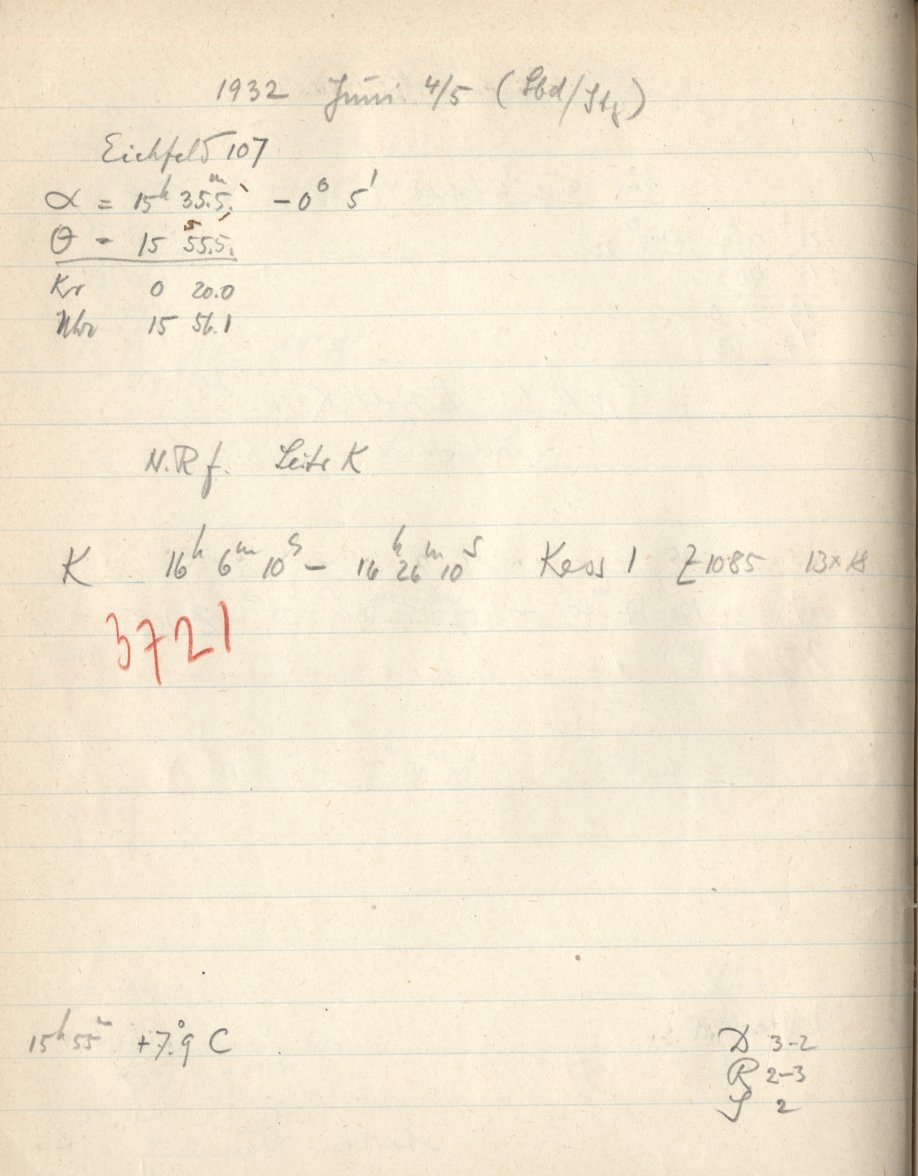 1932 Juni 4/5 (Sbd/Stg)
Eichfeld 107
α = 15h 35.5m - 0° 5'
θ = 15 55.5
Kr 0 20.0
Uhr 15 56.1
N.R f. Seite K
K 16h 6m 10s – 16h 26m 10s Kass 1 Z 1085 13×18
3721
15h 55m +7.°9 C
D 3-2
R 2-3
S 2